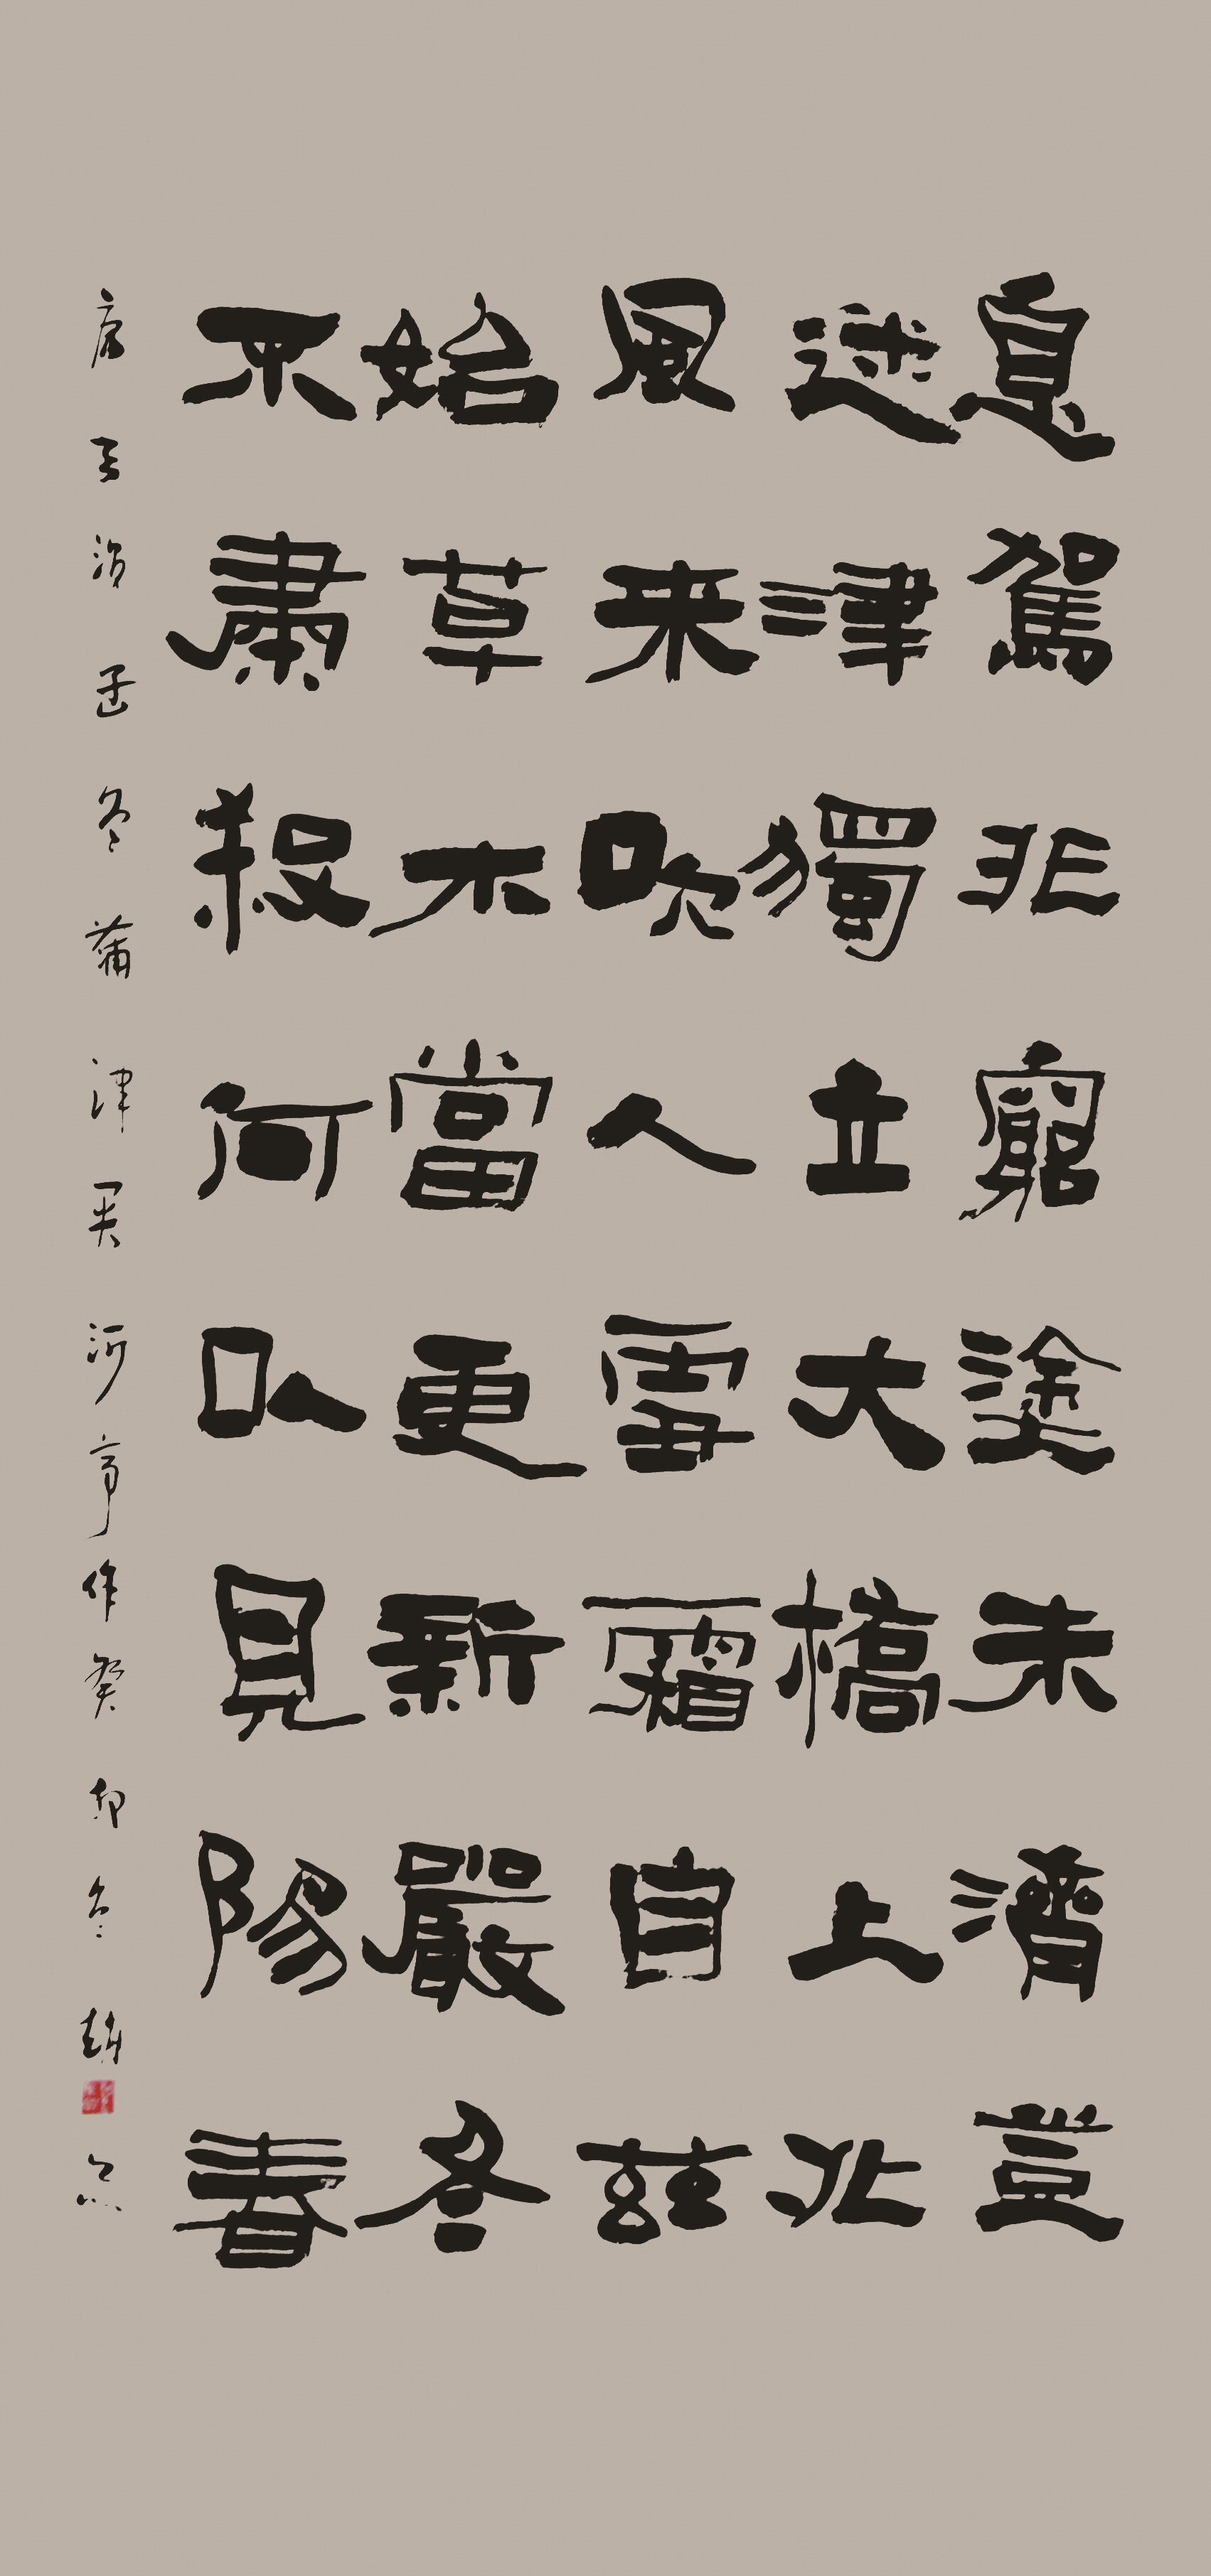 息駕非窮塗未濟豈
迷津獨立大橋上北
風来吹人雪霜自茲
始草木當更新嚴冬
不肅殺何以見陽春
唐呂温孟冬蒲津关河亭作癸卯冬